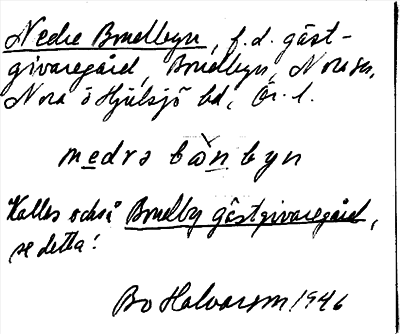 Nedre Bondbyn, f.d. gäst-
givaregård, Bondbyn, Nora sn,
Nora o Hjulsjö bd, Ör. l.
medrə bòn byn
Kallas också Bondby gästgivaregård,
se detta!
Bo Halvarson 1946